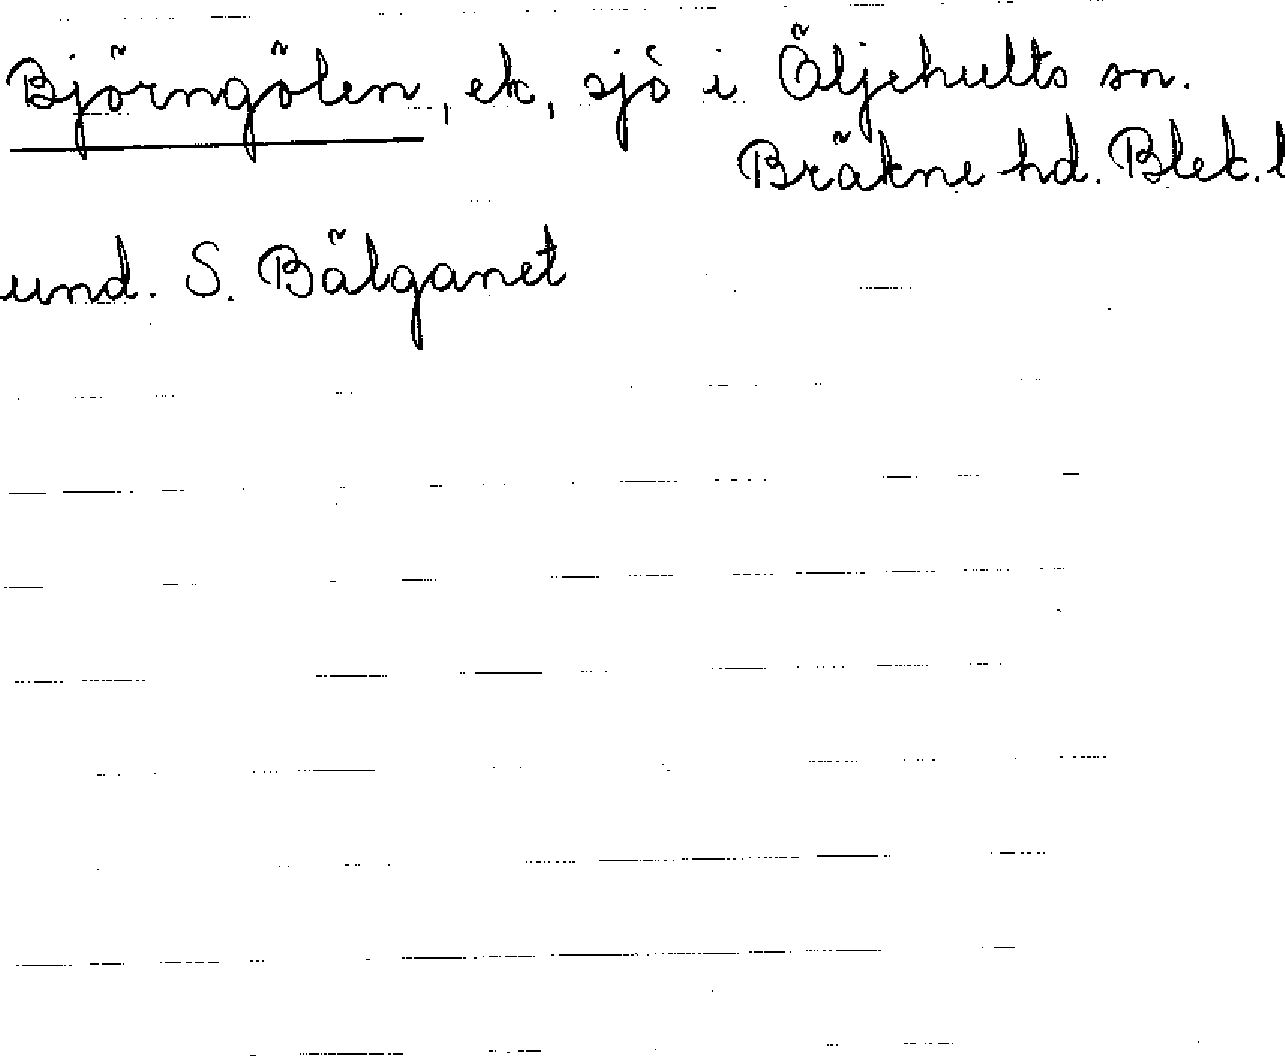 Björngölen, ek, sjö i Öljehults sn.
Bräkne hd. Blek. l
und. S. Bälganet